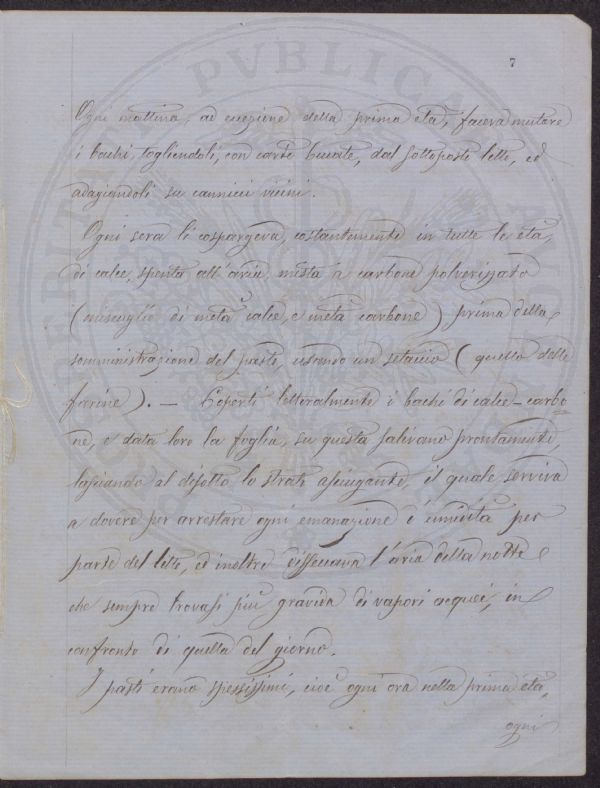 7
Ogni mattina, ad eccezione della prima età, faceva mutare
i bachi, togliendoli, con carte bucate, dal sottoposto letto, ed
adagiandoli su cannicci vicini.
Ogni sera li cospargeva, costantemente in tutte le età,
di calce, spenta all'aria, mista a carbone polverizzato
(miscuglio di metà calce, e metà carbone) prima della
somministrazione del pasto, usando un setaccio (quello delle
farine). — Coperti letteralmente i bachi di calce-carbo
ne, e data loro la foglia, su questa salivano prontamente,
lasciando al disotto lo strato asciugante, il quale serviva
a dovere per arrestare ogni emanazione d'umidità per
parte del letto, ed inoltre disseccava l'aria della notte
che sempre trovasi più gravida di vapori acquei, in
confronto di quella del giorno.
I pasti erano spessissimi, cioè ogni ora nella prima età,
ogni
PVBLICA